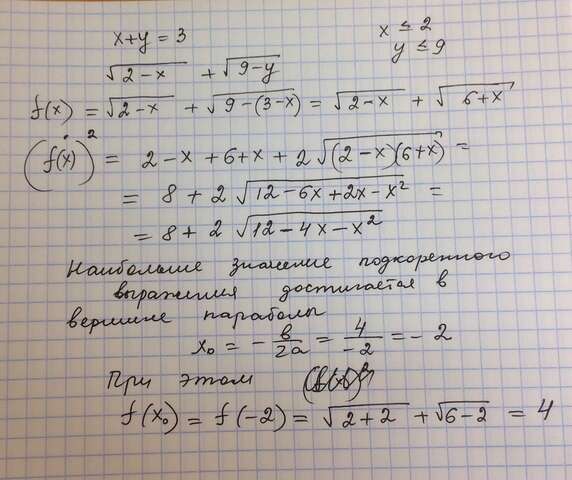 x+y=3
x ≤ 2
y ≤ 9
√(2-x) + √(9-y)
f(x) = √(2-x) + √(9-(3-x)) = √(2-x) + √(6+x)
(f(x))² = 2-x+6+x+2√((2-x)(6+x)) =
= 8+2√(12-6x+2x-x²) =
= 8+2√(12-4x-x²)
Наибольшее значение подкоренного
выражения достигается в
вершине параболы
x₀ = -в/2а = 4/-2 = -2
При этом
f(x₀) = f(-2) = √(2+2) + √(6-2) = 4